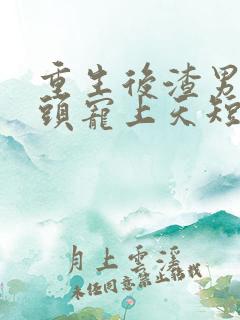 重生後渣男
頭寵上天短
月上雲溪
未经同意禁止转找